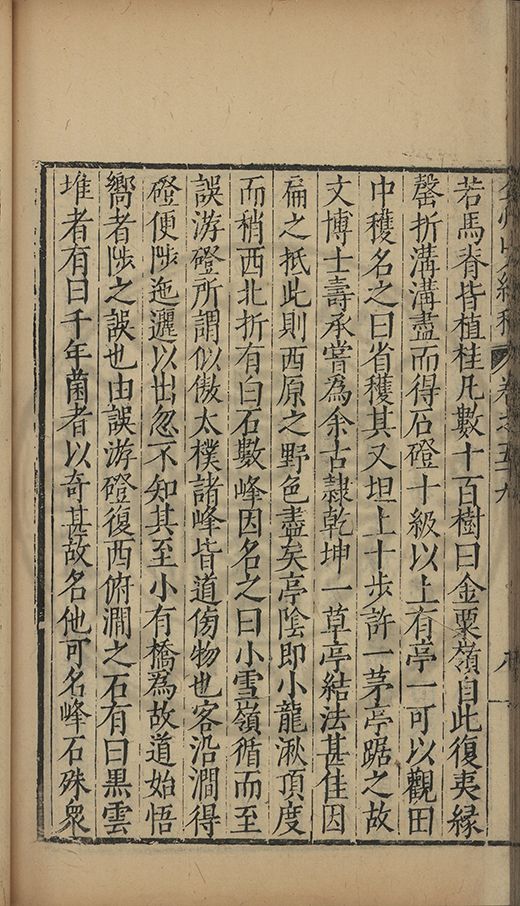 弇州山人續稿 卷之五十九 八
若馬脊皆植桂凡數十百樹曰金粟嶺自此復夷縁
罄折溝溝盡而得石磴十級以上有亭一可以觀田
中穫名之曰省穫其又坦上十步許一茅亭踞之故
文博士壽承嘗為余古隷乾坤一草亭結法甚佳因
扁之抵此則西原之野色盡矣亭陰即小龍湫頂度
而稍西北折有白石數峰因名之曰小雪嶺循而至
誤游磴所謂似傲太樸諸峰皆道傍物也客沿澗得
磴便陟迤邐以出忽不知其至小有橋為故道始悟
嚮者陟之誤也由誤游磴復西俯澗之石有曰黒雲
堆者有曰千年菌者以奇甚故名他可名峰石殊衆